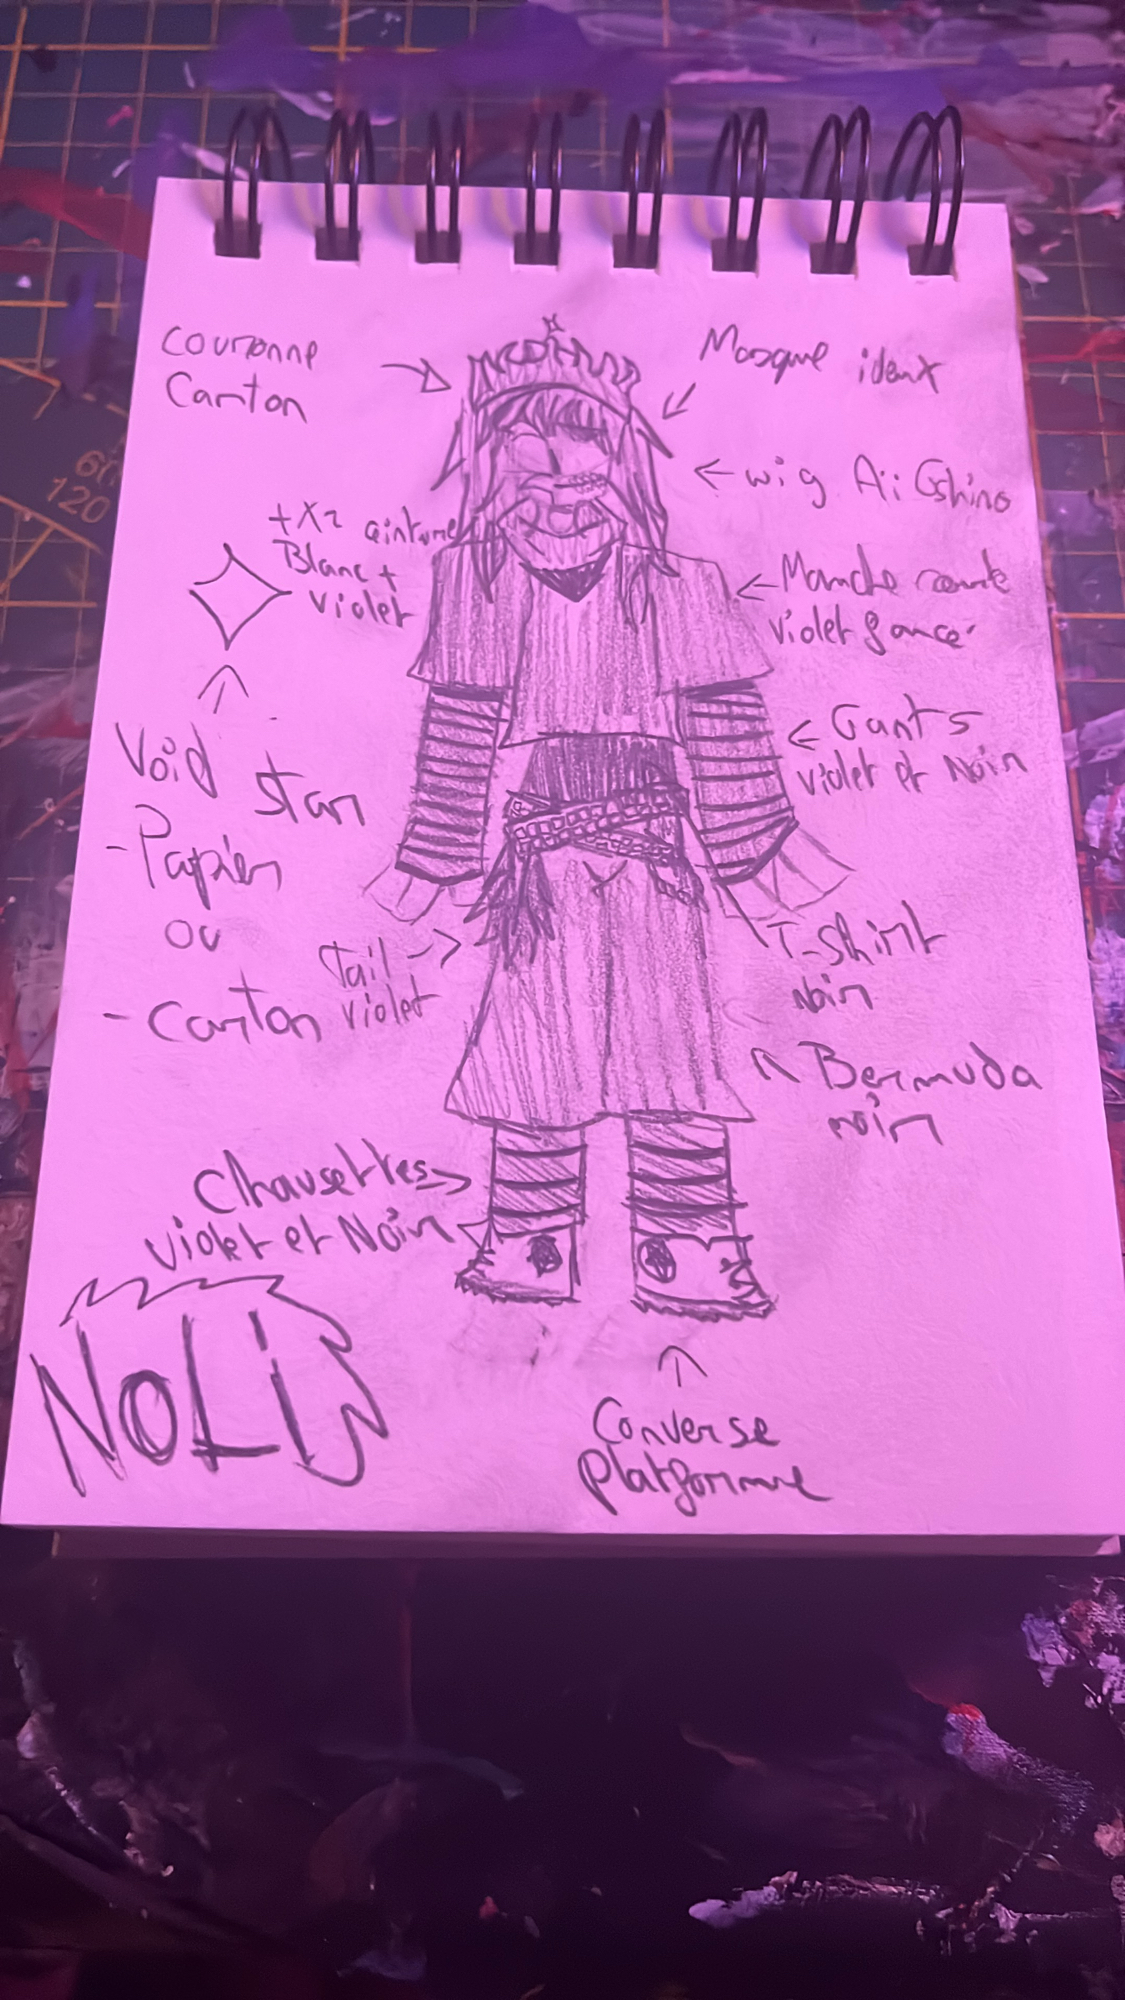 couronne
Carton
Masque ideux
wig Ai Oshino
+ X2 ceinture
Blanc +
violet
Manche courte
violet foncé
Void star
- Papier
ou
- Carton
Gants
violet et Noir
Tail
violet
T-Shirt
Noir
Bermuda
noir
Chausettes
violet et Noir
NOLi
Converse
platforme
60
120